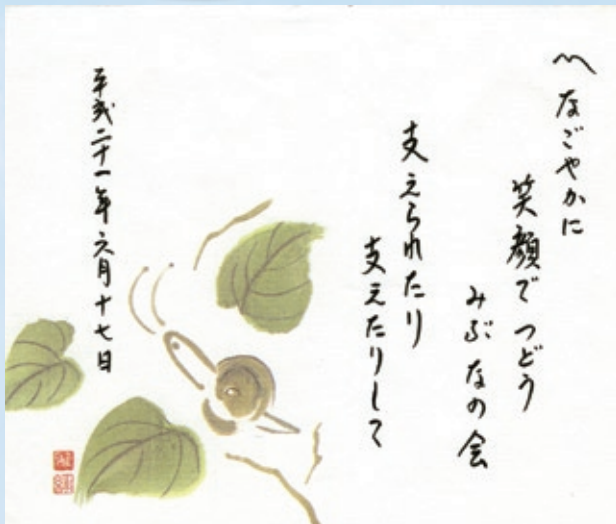 〽なごやかに
笑顔でつどう
みぶなの会
支えられたり
支えたりして
平成二十一年六月十七日